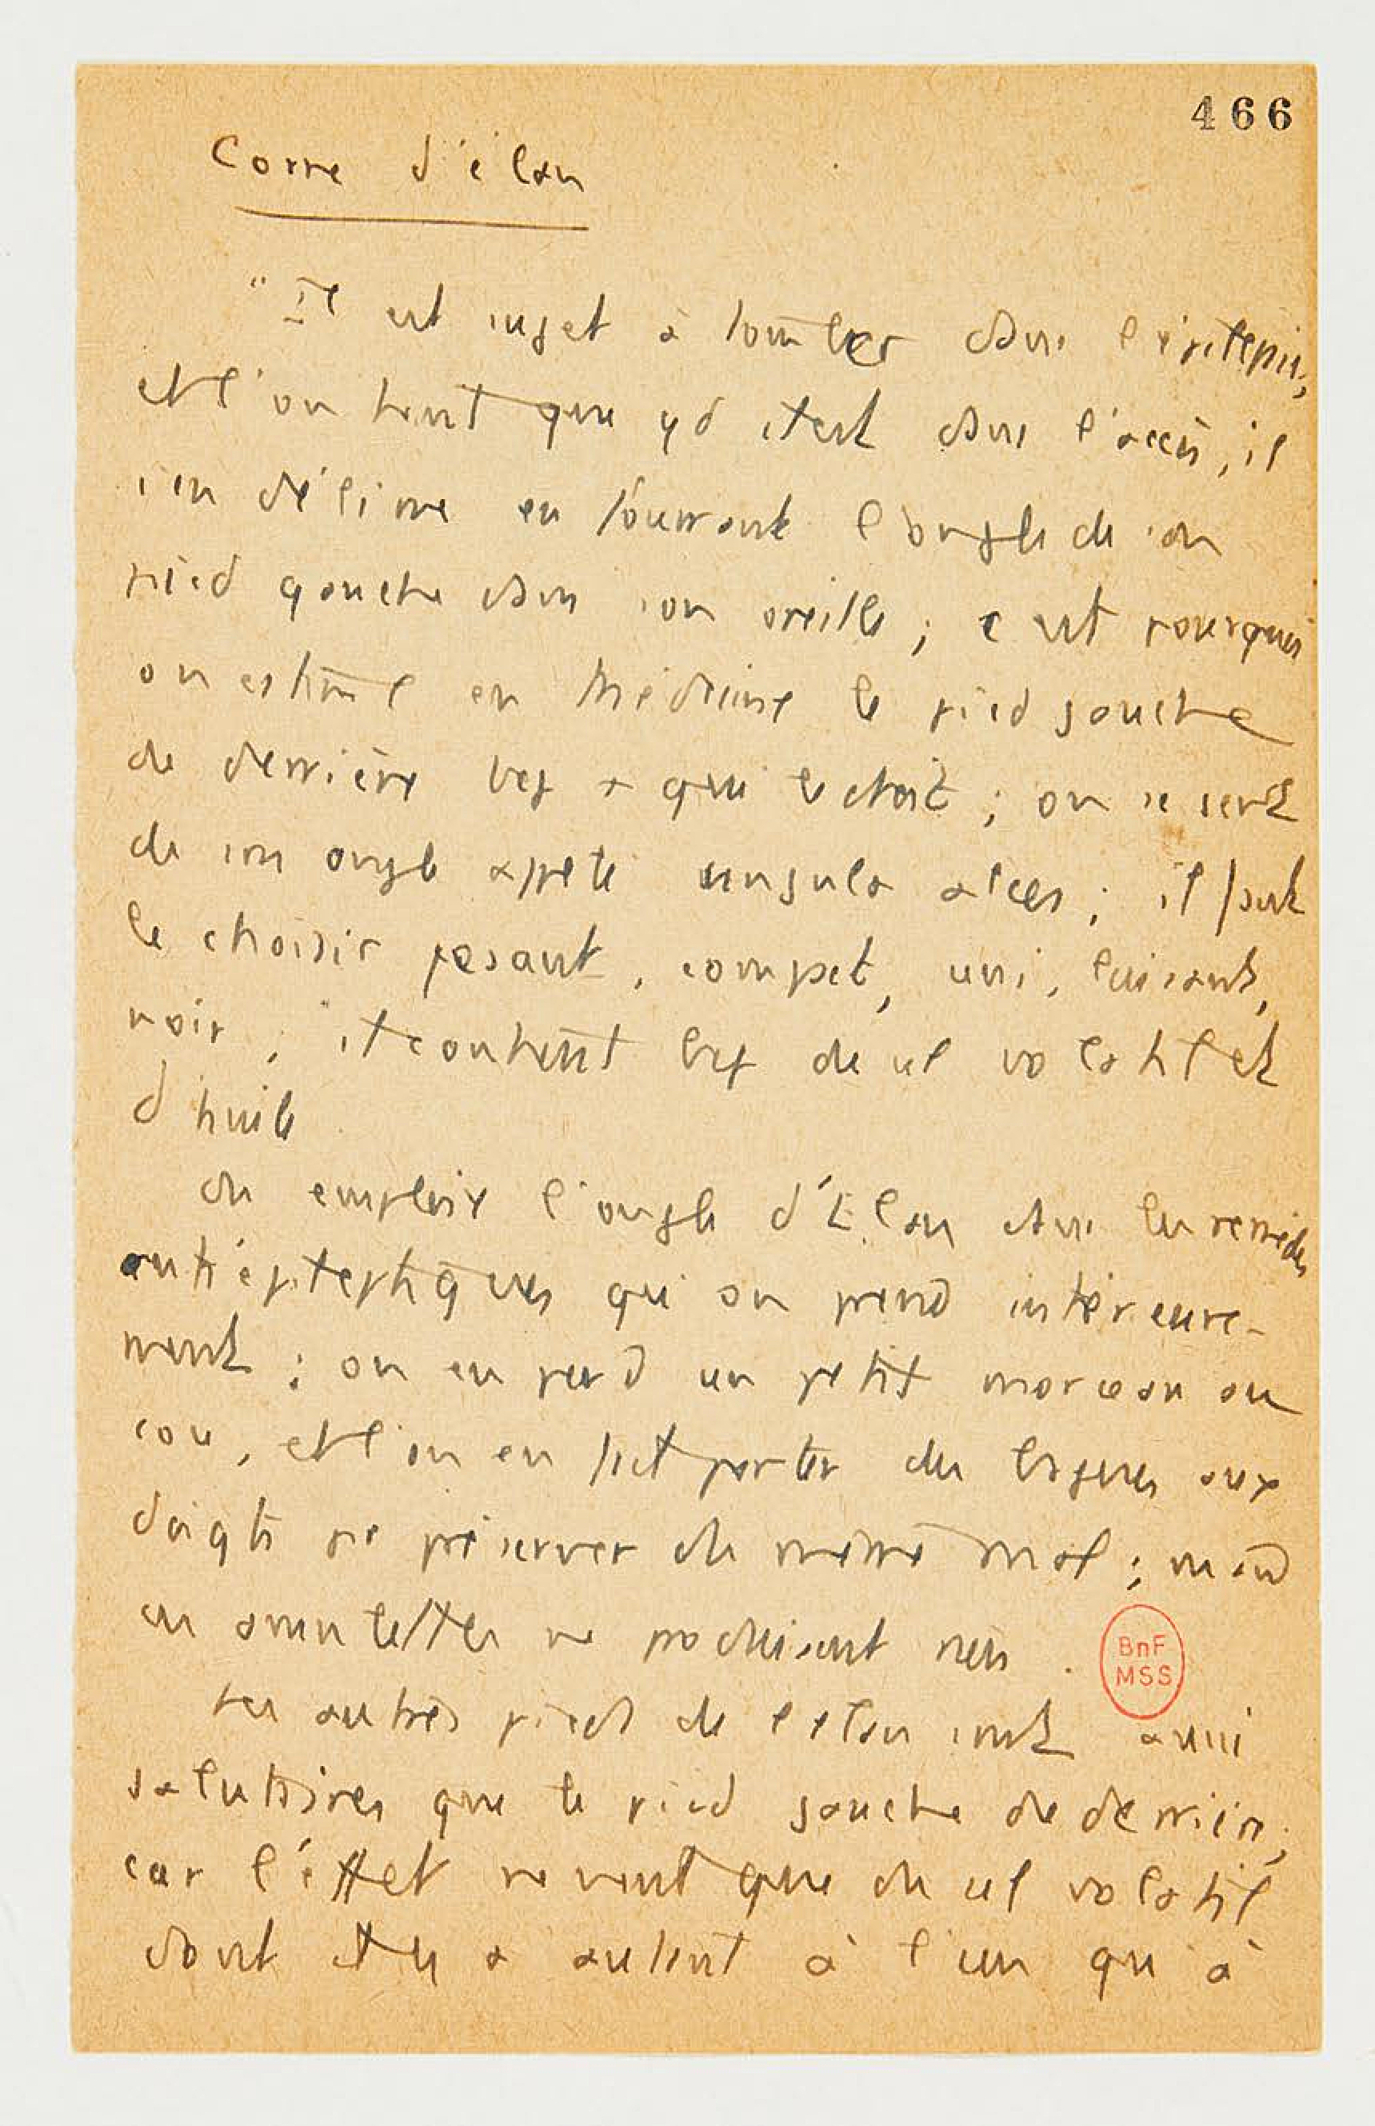 466
Corne d'élan
"Il est sujet à tomber dans l'épilepsie,
et l'on tient que qd il est dans l'accès, il
s'en délivre en fourrant l'ongle de son
pied gauche dans son oreille ; c'est pourquoi
on estime en Médecine le pied gauche
de derrière
de son ongle appelé ungula alces ; il faut
le choisir pesant, compact, uni, luisant,
noir ; il contient bcp de sel volatil et
d'huile
On emploie l'ongle d'Élan dans les remèdes
antiépileptiques qu'on prend intérieure-
ment ; on en pend un petit morceau au
cou, et l'on en fait porter des bagues aux
doigts pr préserver du même mal ; mais
ces amulettes ne produisent rien.
BnF
MSS
Les autres pieds de l'élan sont aussi
salutaires que le pied gauche de derrière,
car l'effet ne vient que du sel volatil
dont il y a autant à l'un qu'à